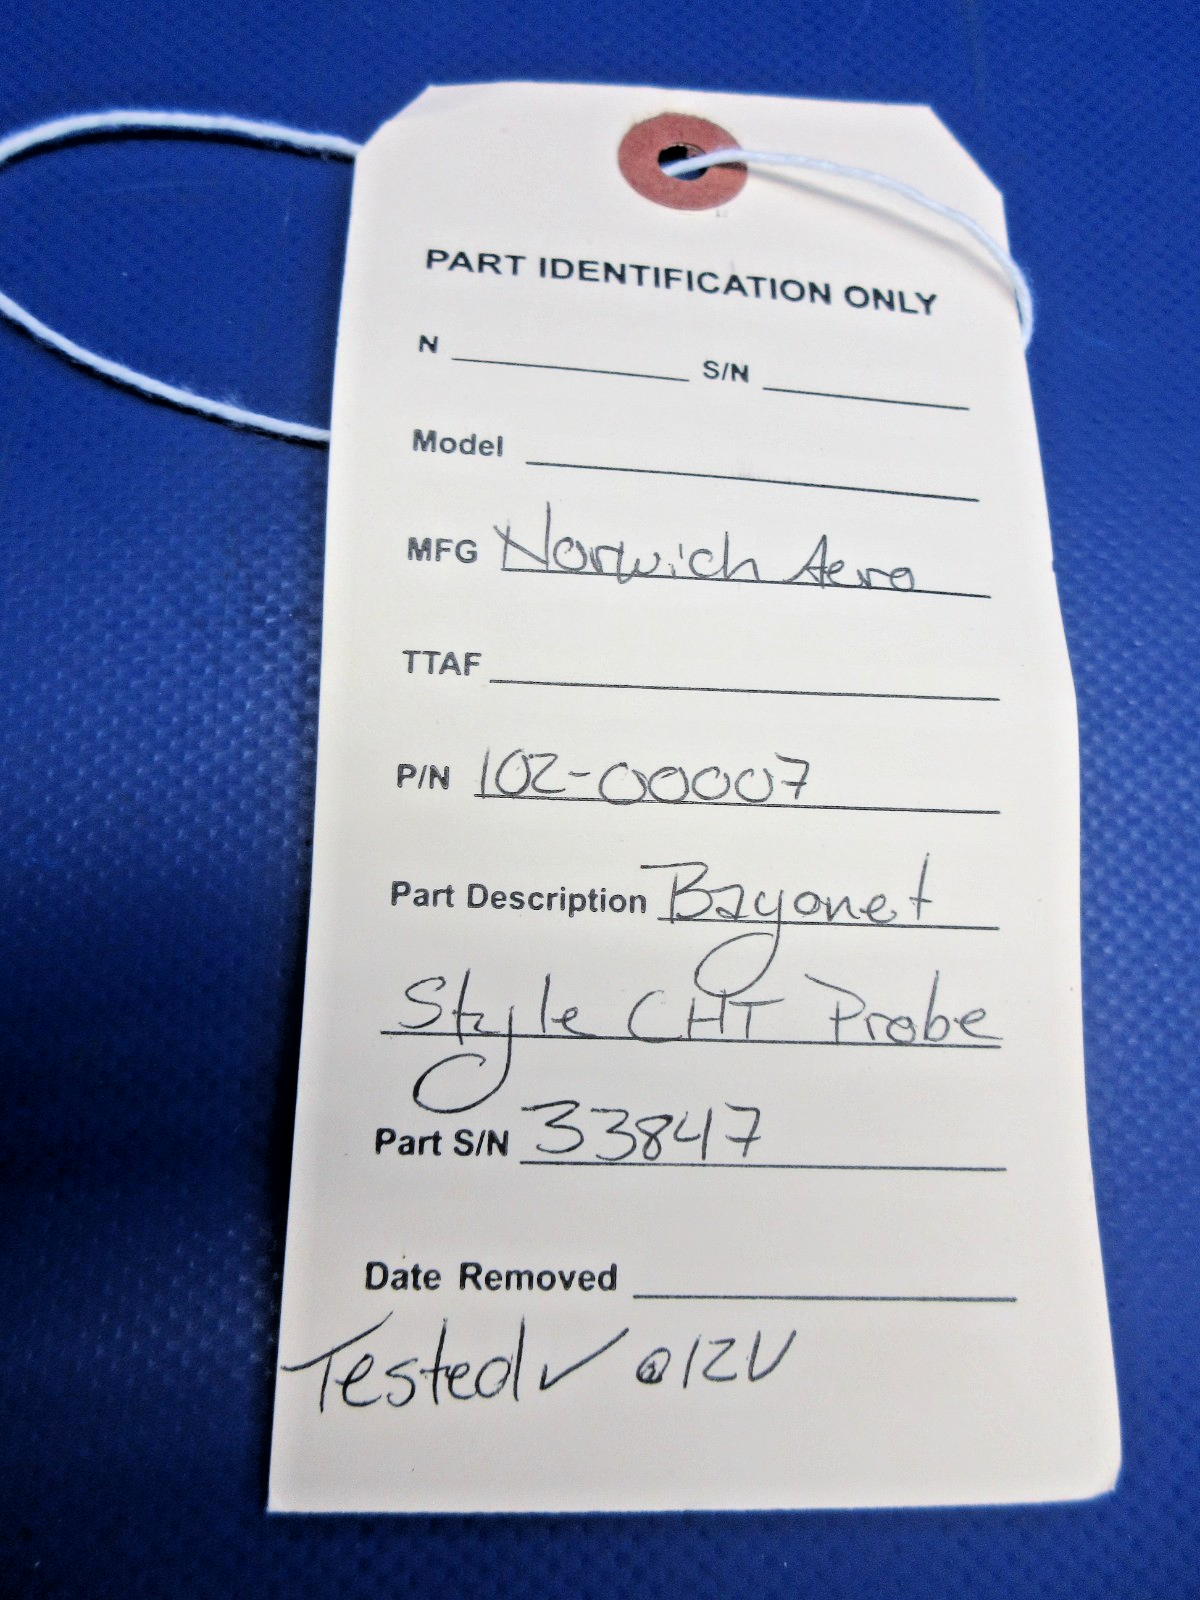 PART IDENTIFICATION ONLY
N S/N
Model
MFG Norwich Aero
TTAF
P/N 102-00007
Part Description Bayonet
Style CHT Probe
Part S/N 33847
Date Removed
Tested ✓ @12V